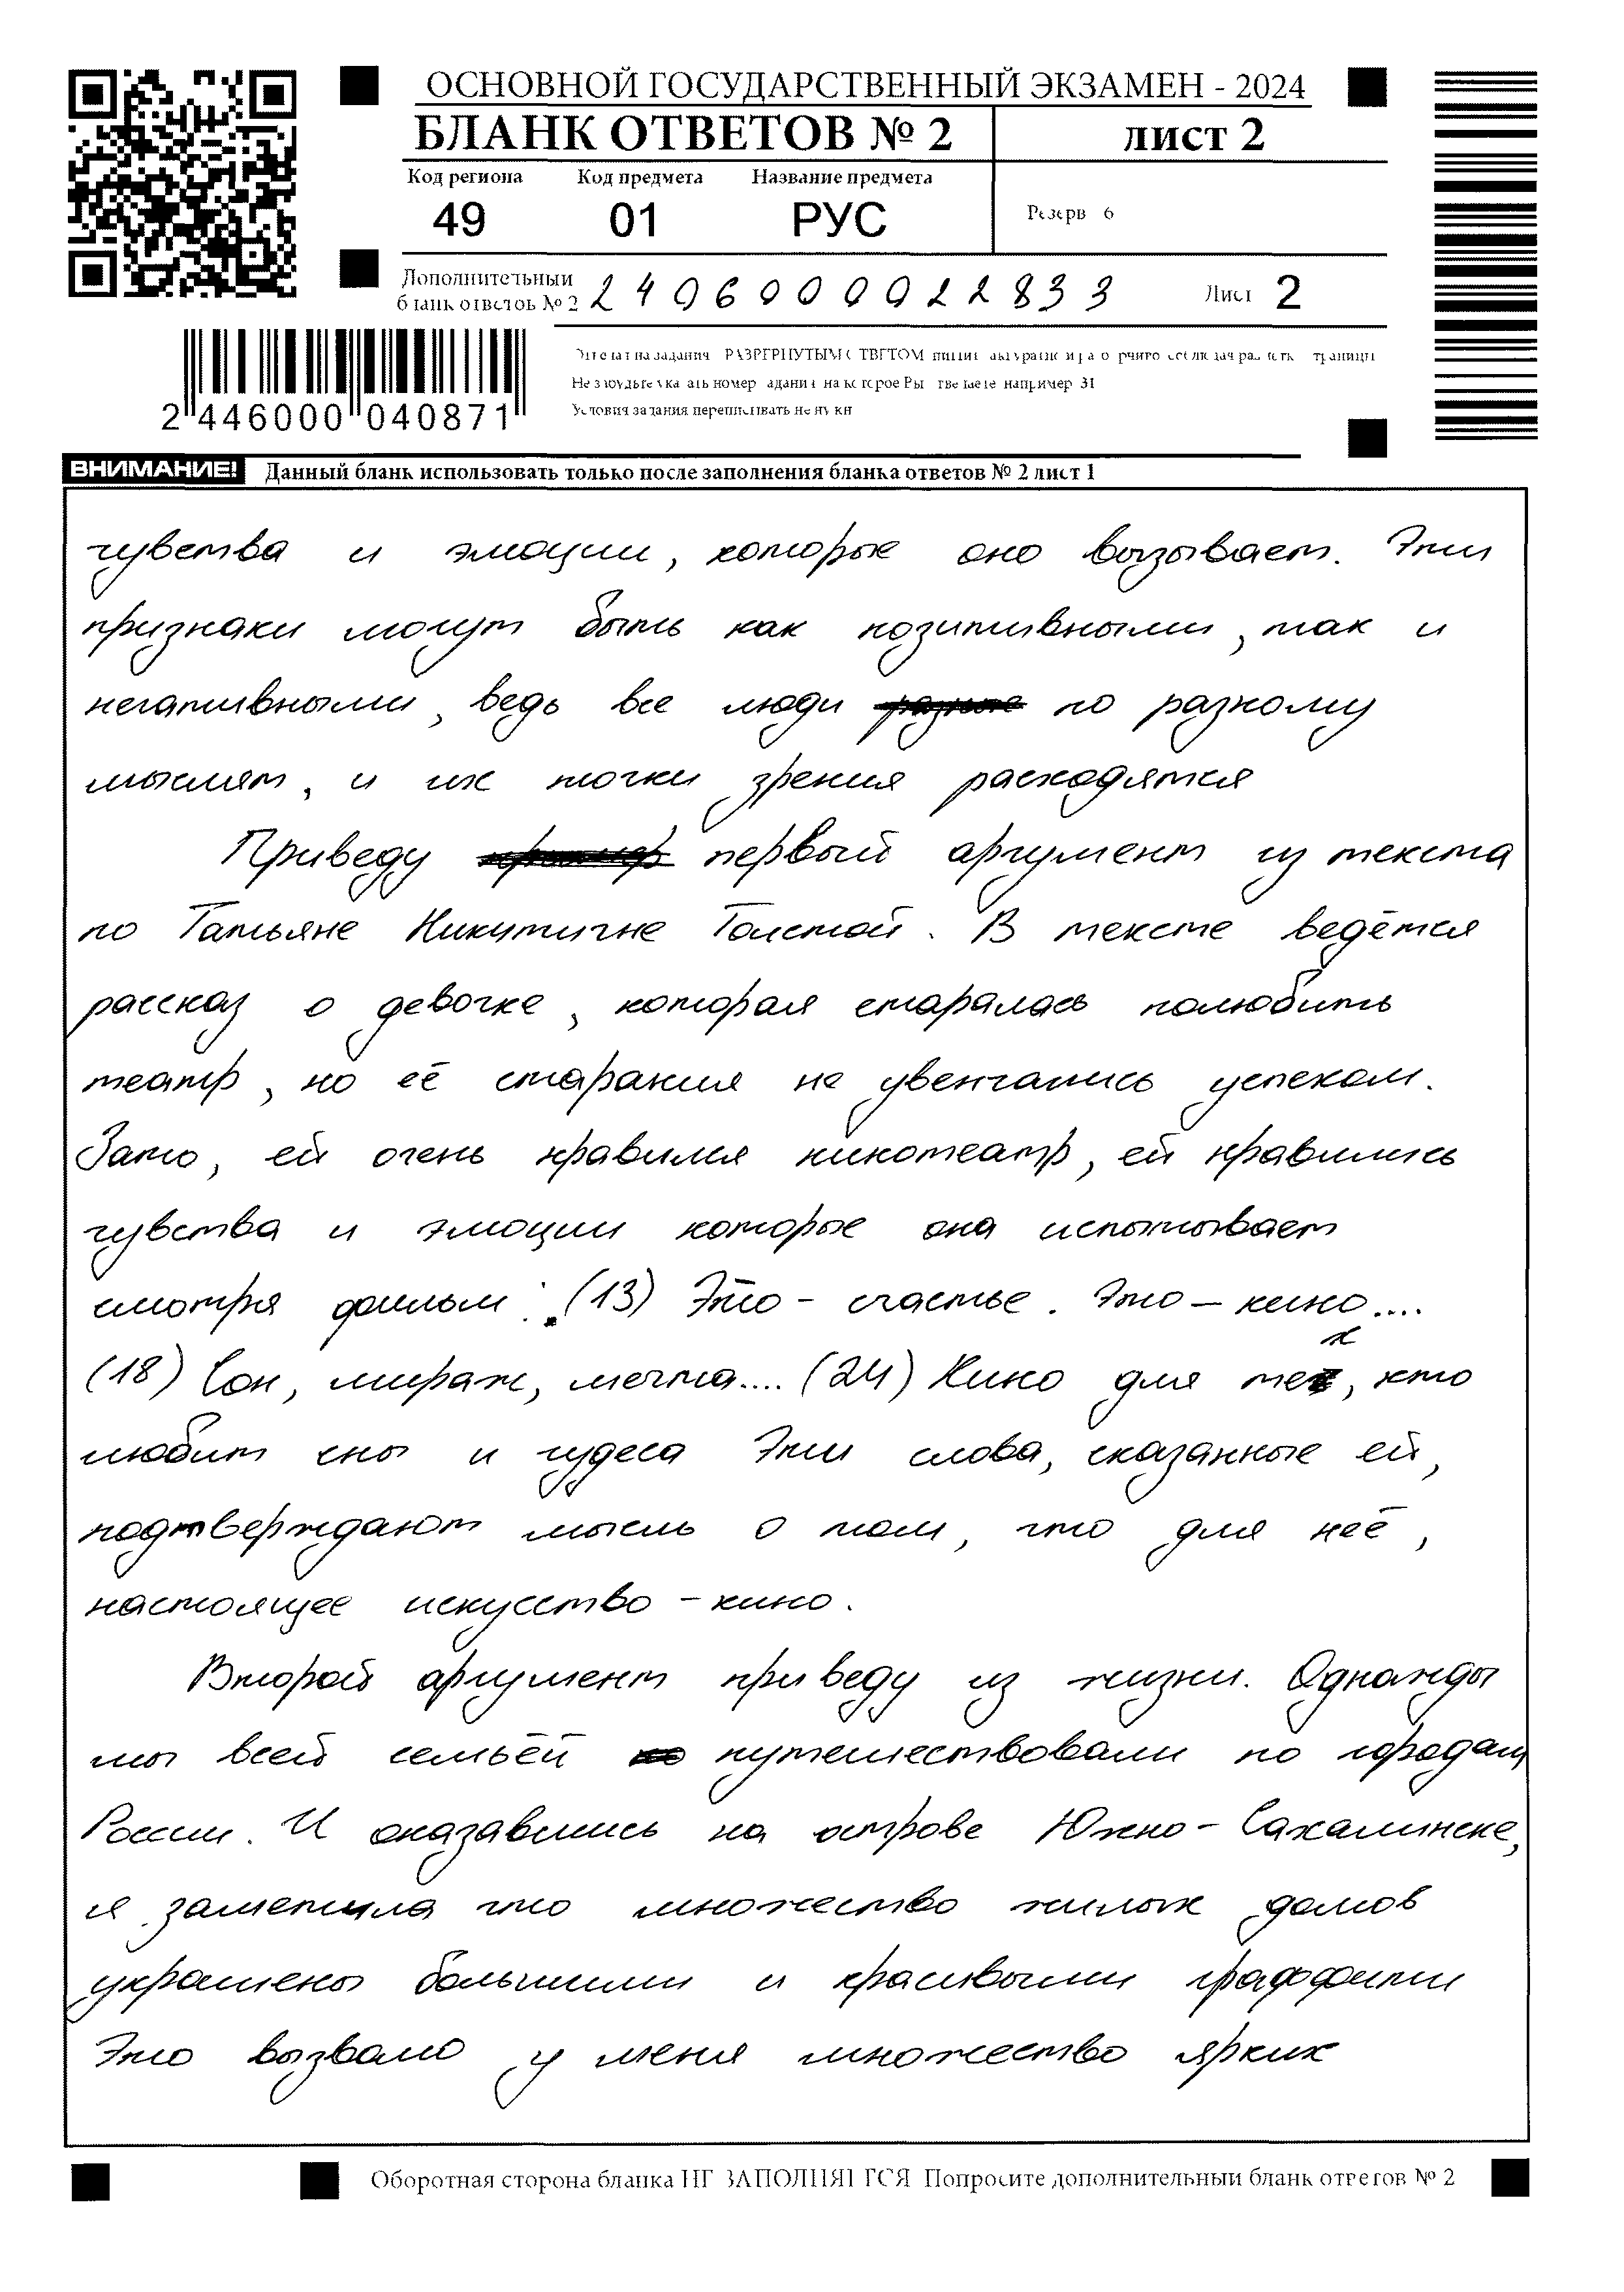 ОСНОВНОЙ ГОСУДАРСТВЕННЫЙ ЭКЗАМЕН - 2024
БЛАНК ОТВЕТОВ № 2
ЛИСТ 2
Код региона Код предмета Название предмета
49 01 РУС
Резерв 6
Дополнительный
бланк ответов № 2
2406000022833
Лист 2
2 446000 040871
Условия задания переписывать не нужн
ВНИМАНИЕ! Данный бланк использовать только после заполнения бланка ответов № 2 лист 1
чувства и эмоции, которые оно вызывает. Эти
признаки могут быть как позитивными, так и
негативными, ведь все люди по разному
мыслят, и их точки зрения расходятся
Приведу первый аргумент из текста
по Татьяне Никитичне Толстой. В тексте ведётся
рассказ о девочке, которая старалась полюбить
театр, но её старания не увенчались успехом.
Зато, ей очень нравился кинотеатр, ей нравились
чувства и эмоции которые она испытывает
смотря фильм: (13) Это - счастье. Это - кино....
(18) Сон, мираж, мечта.... (24) Кино для тех, кто
любит сны и чудеса Эти слова, сказанные ей,
подтверждают мысль о том, что для неё,
настоящее искусство - кино.
Второй аргумент приведу из жизни. Однажды
мы всей семьёй путешествовали по городам
России. И оказавшись на острове Южно-Сахалинске,
я заметила что множество жилых домов
украшены большими и красивыми граффити
Это вызвало у меня множество ярких
Оборотная сторона бланка НЕ ЗАПОЛНЯЕТСЯ Попросите дополнительный бланк ответов № 2